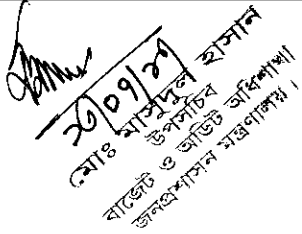 ২৩/০৭/২৭
মোঃ মাসুদুল হাসান
উপসচিব
বাজেট ও অডিট অধিশাখা
জনপ্রশাসন মন্ত্রণালয়।